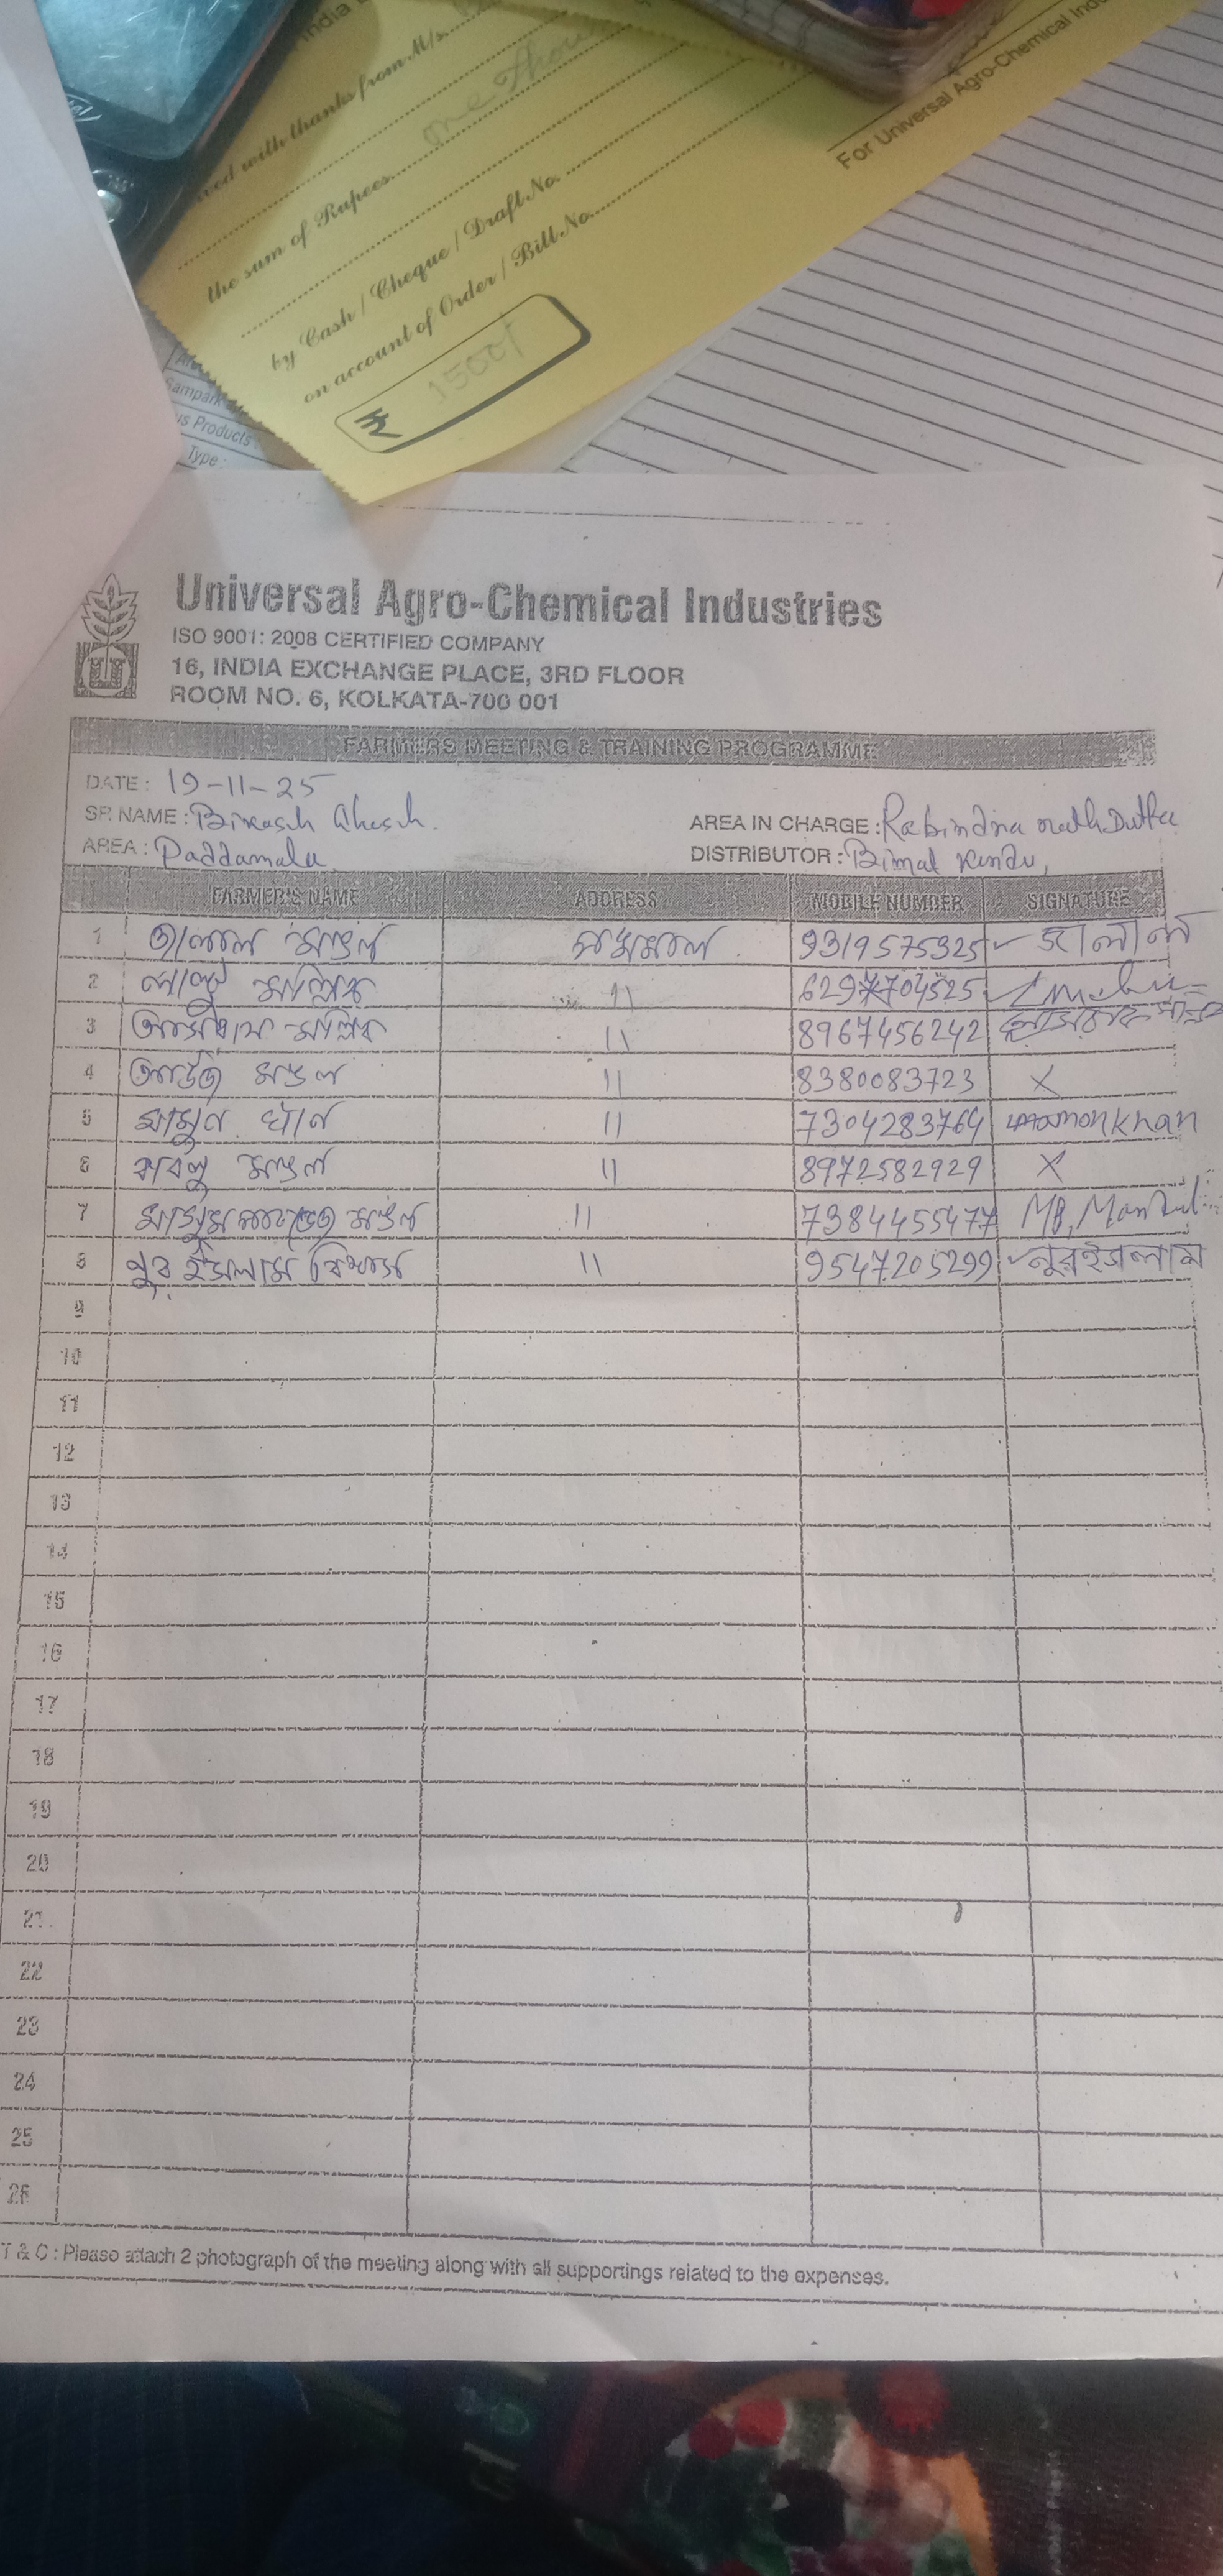 India
ived with thanks from M/s.
one Thou
the sum of Rupees
by Cash / Cheque / Draft No.
on account of Order / Bill No.
₹ 1500/
For Universal Agro-Chemical Indu
Sampark
us Products
Type :
Universal Agro-Chemical Industries
ISO 9001: 2008 CERTIFIED COMPANY
16, INDIA EXCHANGE PLACE, 3RD FLOOR
ROOM NO. 6, KOLKATA-700 001
FARMERS MEETING & TRAINING PROGRAMME
DATE : 19-11-25
SR NAME : Bikash Ghosh.
AREA IN CHARGE : Rabindra nath Dutta
AREA : Paddamala
DISTRIBUTOR : Bimal Kundu,
FARMER'S NAME ADDRESS MOBILE NUMBER SIGNATURE
1 জালাল মণ্ডল 9319575325 জালাল
2 লাল্টু মল্লিক 11 6297704525
3 মল্লিক 11 8967456242
4 মণ্ডল 11 8380083723 X
5 মামুন খাঁন 11 7304283764 mamonkhan
6 বাবলু মণ্ডল 11 8972582929 X
7 মণ্ডল 11 7384455477 MB, Mondal
8 নুর ইসলাম বিশ্বাস 11 9547205299 নুরইসলাম
9
10
11
12
13
14
15
16
17
18
19
20
21
22
23
24
25
26
T & C : Please attach 2 photograph of the meeting along with all supportings related to the expenses.